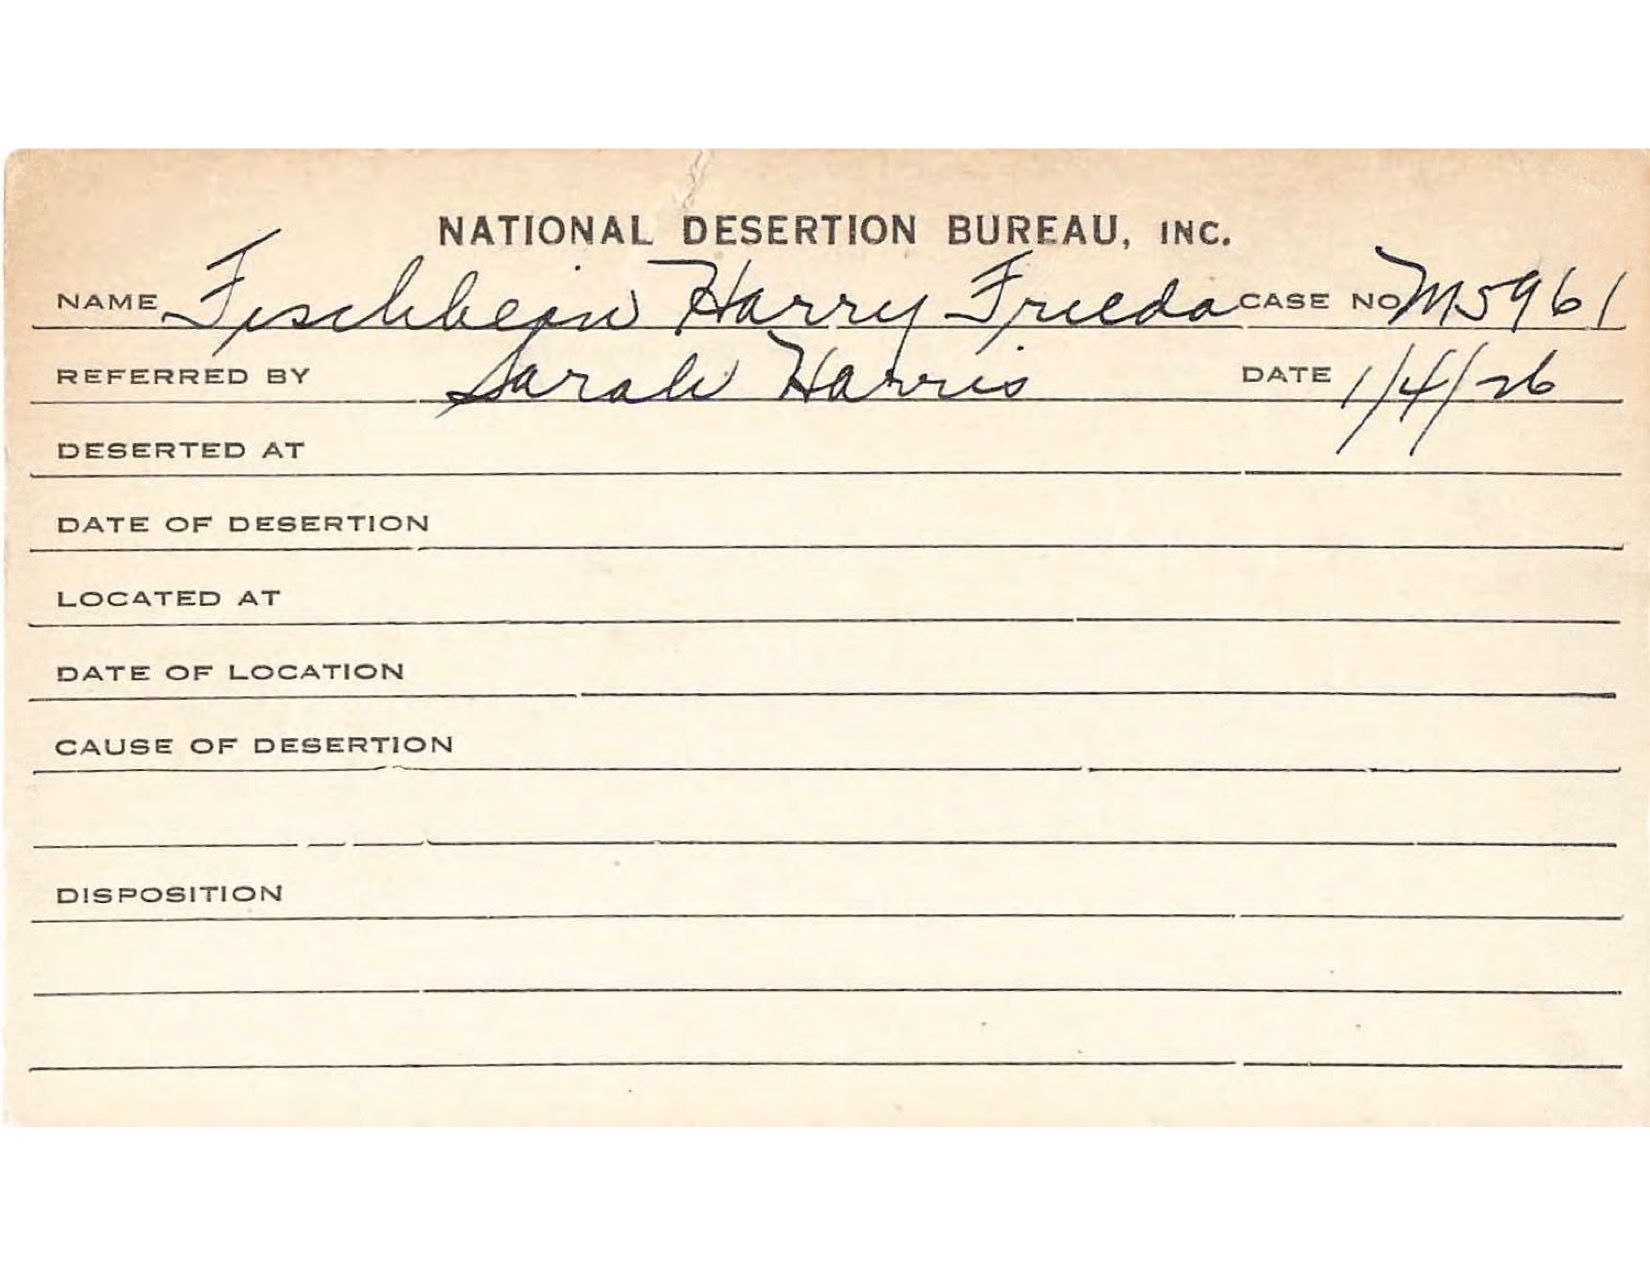 NATIONAL DESERTION BUREAU, INC.
NAME Fischbein Harry Frieda CASE NO M5961
REFERRED BY Sarah Harris DATE 1/4/26
DESERTED AT
DATE OF DESERTION
LOCATED AT
DATE OF LOCATION
CAUSE OF DESERTION
DISPOSITION